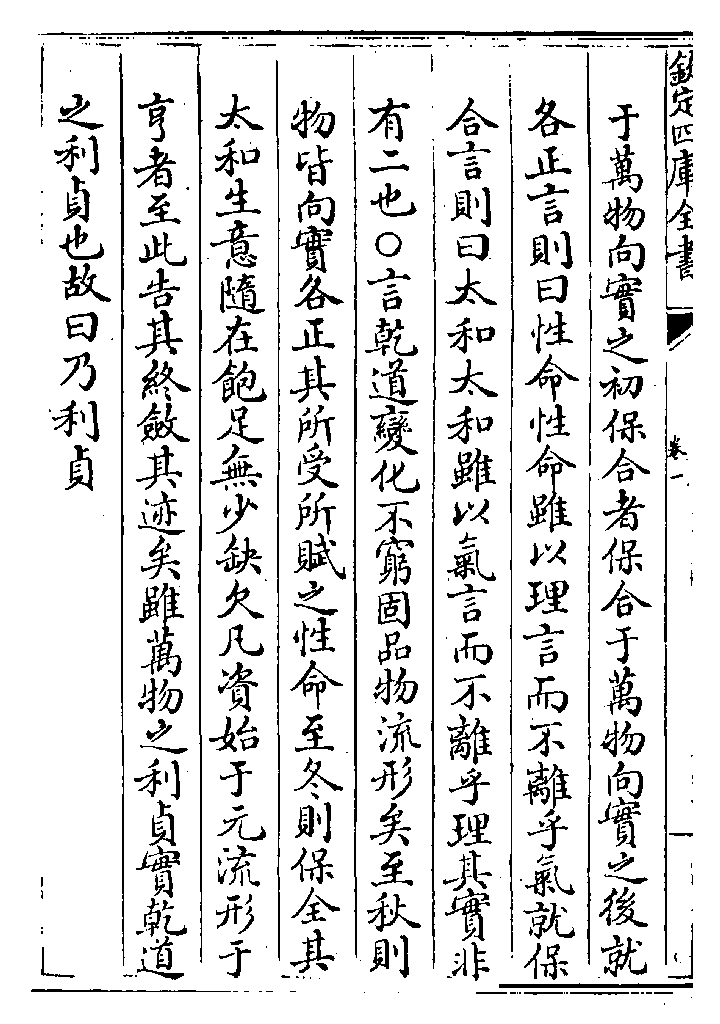 欽定四庫全書
卷一
于萬物向實之初保合者保合于萬物向實之後就
各正言則曰性命性命雖以理言而不離乎氣就保
合言則曰太和太和雖以氣言而不離乎理其實非
有二也○言乾道變化不窮固品物流形矣至秋則
物皆向實各正其所受所賦之性命至冬則保全其
太和生意隨在飽足無少缺欠凡資始于元流形于
亨者至此告其終斂其迹矣雖萬物之利貞實乾道
之利貞也故曰乃利貞